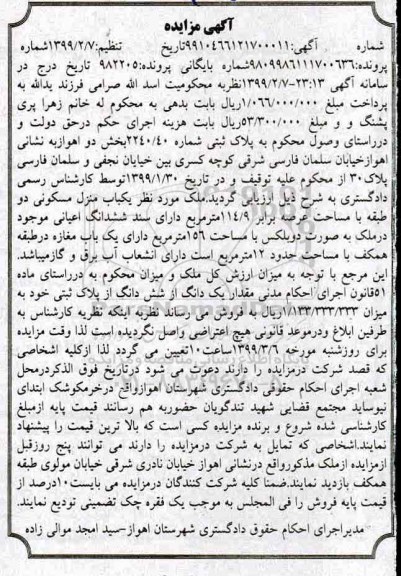 آگهی مزایده
شماره آگهی:۹۹۱۰۴۶۶۱۲۱۷۰۰۰۱۱تاریخ تنظیم:۱۳۹۹/۲/۷شماره
پرونده:۹۸۰۹۹۸۶۱۱۱۷۰۰۶۳۶شماره بایگانی پرونده:۹۸۲۲۰۵ تاریخ درج در
سامانه آگهی ۲۳:۱۳-۱۳۹۹/۲/۷نظربه محکومیت اسد الله صرامی فرزند یدالله به
پرداخت مبلغ ۱/۰۶۶/۰۰۰/۰۰۰ریال بابت بدهی به محکوم له خانم زهرا پری
پشنگ و و مبلغ ۵۳/۳۰۰/۰۰۰ریال بابت هزینه اجرای حکم درحق دولت و
درراستای وصول محکوم به پلاک ثبتی شماره ۲۲۴۰/۴۰بخش دو اهوازبه نشانی
اهوازخیابان سلمان فارسی شرقی کوچه کسری بین خیابان نجفی و سلمان فارسی
پلاک۳۰ از محکوم علیه توقیف و در تاریخ ۱۳۹۹/۱/۳۰توسط کارشناس رسمی
دادگستری به شرح ذیل ارزیابی گردید.ملک مورد نظر یکباب منزل مسکونی دو
طبقه با مساحت عرصه برابر ۱۱۴/۹مترمربع دارای سند ششدانگ اعیانی موجود
درملک به صورت دوبلکس با مساحت ۱۵۶مترمربع دارای یک باب مغازه درطبقه
همکف با مساحت حدود ۱۲مترمربع است دارای انشعاب آب برق و گازمیباشد.
این مرجع با توجه به میزان ارزش کل ملک و میزان محکوم به درراستای ماده
۵۱قانون اجرای احکام مدنی مقدار یک دانگ از شش دانگ از پلاک ثبتی خود به
میزان ۱/۱۳۳/۳۳۳/۳۳۳ریال به فروش می رساند نظربه اینکه نظریه کارشناس به
طرفین ابلاغ ودرموعد قانونی هیچ اعتراضی واصل نگردیده است لذا وقت مزایده
برای روزشنبه مورخه ۱۳۹۹/۳/۶ساعت۱۰تعیین می گردد لذا ازکلیه اشخاصی
که قصد شرکت درمزایده را دارند دعوت می شود درتاریخ فوق الذکردرمحل
شعبه اجرای احکام حقوقی دادگستری شهرستان اهوازواقع درخرمکوشک ابتدای
نیوساید مجتمع قضایی شهید تندگویان حضوربه هم رسانند قیمت پایه ازمبلغ
کارشناسی شده شروع و برنده مزایده کسی است که بالا ترین قیمت را پیشنهاد
نمایند.اشخاصی که تمایل به شرکت درمزایده را دارند می توانند پنج روزقبل
ازمزایده ازملک مذکورواقع درنشانی اهواز خیابان نادری شرقی خیابان مولوی طبقه
همکف بازدید نمایند.ضمنا کلیه شرکت کنندگان درمزایده می بایست۱۰درصد از
قیمت پایه فروش را فی المجلس به موجب یک فقره چک تضمینی تودیع نمایند.
مدیراجرای احکام حقوق دادگستری شهرستان اهواز–سید امجد موالی زاده